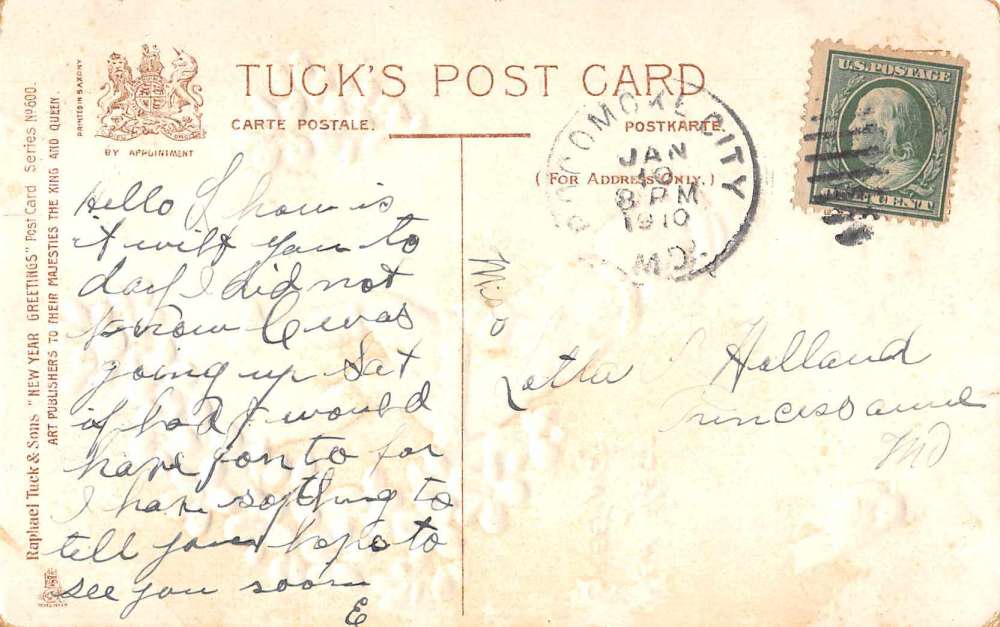 TUCK'S POST CARD
CARTE POSTALE.
POSTKARTE.
(FOR ADDRESS ONLY.)
BY APPOINTMENT
PRINTED IN SAXONY
Raphael Tuck & Sons "NEW YEAR GREETINGS" Post Card Series Nº 600.
ART PUBLISHERS TO THEIR MAJESTIES THE KING AND QUEEN.
POCOMOKE CITY
JAN
8 PM
1910
MD.
U.S. POSTAGE
Hello L how is
it with you to
day I did not
know C was
going up Sat
if had I would
have gon to for
I have sopthing to
tell you hope to
see you soon
E
Miss
Holland
Princess anne
Md